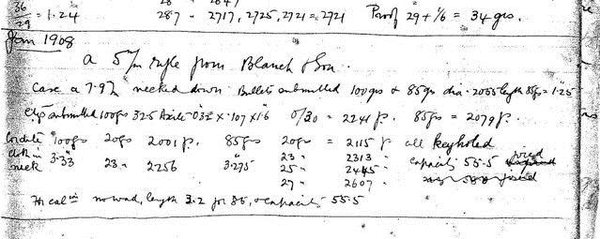 36/29 = 1.24 28 - 2647
287 - 2717, 2725, 2721 = 2721 Proof 29 + 1/6 = 34 grs.
Jan 1908
a 5 m/m rifle from Blanch & Son
Case a 7.9 necked down Bullets submitted 100grs & 85gr dia. .2055 length 85grs = 1.25
submitted 100grs 32.5 Axite .032 x .107 x 1.6 0/30 = 2241 f. 85grs = 2079 f.
Cordite 100grs 20grs 2001 f. 85grs 20grs = 2115 f. all keyholed
cloth in 3.33 23 - 2256 3.275 23 - 2313 capacity 55.5
neck 25 - 2445
27 - 2607
no wad, length 3.2 for 85, capacity 55.5